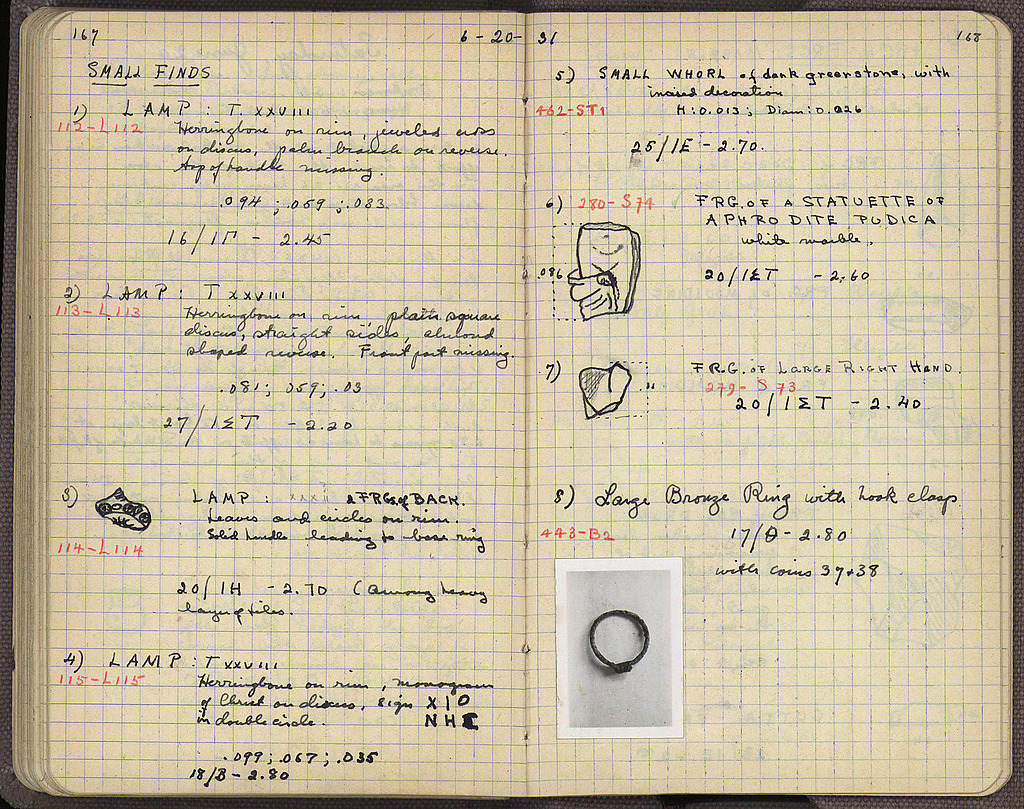 167
6-20-31
SMALL FINDS
1) LAMP: T XXVIII
112-L112 Herringbone on rim, jeweled cross
on discus, palm branch on reverse.
top of handle missing.
.094; .059; .083
16/1Γ - 2.45
2) LAMP: T XXVIII
113-L113 Herringbone on rim, plain square
discus, straight sides, almond
shaped reverse. Front part missing.
.081; .059; .03
27/1ΣΤ - 2.20
3) LAMP: 2 FRGs of BACK.
Leaves and circles on rim.
Solid handle leading to base ring
114-L114
20/1H - 2.70 (Among heavy
layer of tiles.
4) LAMP: T XXVIII
115-L115
Herringbone on rim, monogram
of Christ on discus, sign X I O
in double circle. N H C
.099; .067; .035
18/B - 2.80
168
5) SMALL WHORL of dark greenstone, with
incised decoration
462-ST1 H: 0.013; Diam: 0.026
25/1E - 2.70.
6) 280-S74 FRG. OF A STATUETTE OF
APHRODITE PUDICA
white marble.
.086
20/1ΣΤ - 2.60
7) FRG. OF LARGE RIGHT HAND.
279-S73
.11
20/1ΣΤ - 2.40
8) Large Bronze Ring with hook clasp
443-B2 17/Θ - 2.80
with coins 37+38